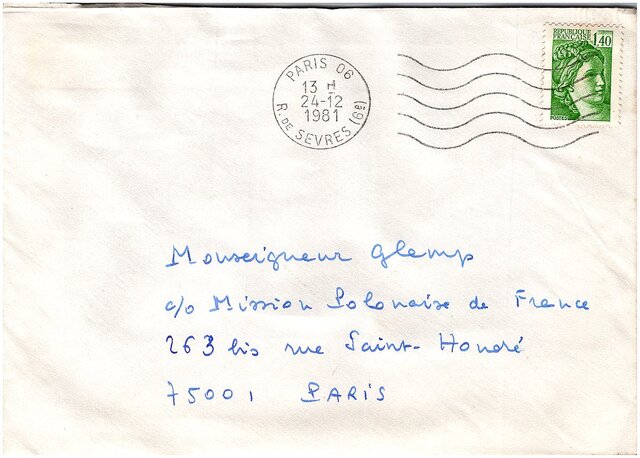 PARIS 06
13 H
24-12
1981
R. DE SEVRES (6e)
REPUBLIQUE
FRANÇAISE
1,40
POSTES
Monseigneur Glemp
c/o Mission Polonaise de France
263 bis rue Saint-Honoré
75001 PARIS